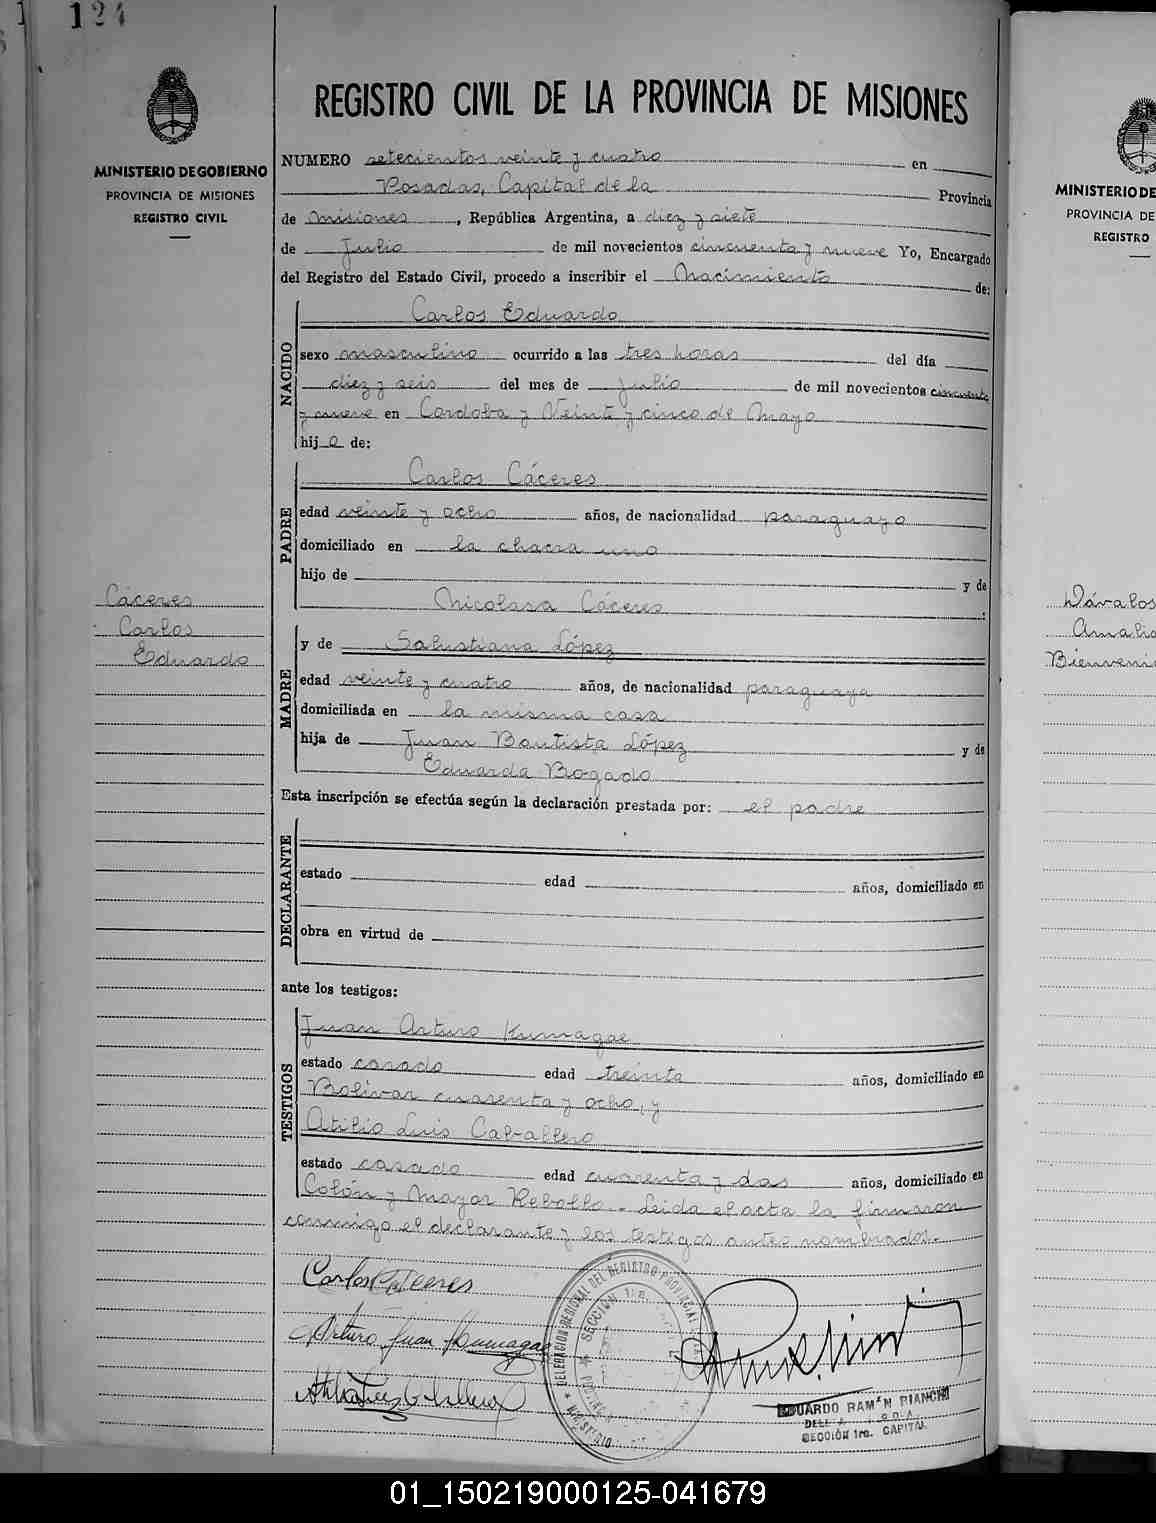 124
REGISTRO CIVIL DE LA PROVINCIA DE MISIONES
MINISTERIO DE GOBIERNO
PROVINCIA DE MISIONES
REGISTRO CIVIL
NUMERO setecientos veinte y cuatro en
Posadas, Capital de la Provincia
de Misiones, República Argentina, a diez y siete
de Julio de mil novecientos cincuenta y nueve Yo, Encargado
del Registro del Estado Civil, procedo a inscribir el Nacimiento de:
NACIDO
Carlos Eduardo
sexo masculino ocurrido a las tres horas del día
diez y seis del mes de julio de mil novecientos cincuenta
y nueve en Cordoba y Veinte y cinco de Mayo
hijo de:
PADRE
Carlos Cáceres
edad veinte y ocho años, de nacionalidad paraguayo
domiciliado en la chacra uno
hijo de y de
Nicolasa Cáceres :
Cáceres
Carlos
Eduardo
MADRE
y de Salustiana López
edad veinte y cuatro años, de nacionalidad paraguaya
domiciliada en la misma casa
hija de Juan Bautista López y de
Eduarda Bogado
Esta inscripción se efectúa según la declaración prestada por: el padre
DECLARANTE
estado edad años, domiciliado en
obra en virtud de
ante los testigos:
TESTIGOS
Juan Arturo Kumagae
estado casado edad treinta años, domiciliado en
Bolivar cuarenta y ocho, y
Atilio Luis Caballero
estado casado edad cuarenta y dos años, domiciliado en
Colón y Mayor Rebollo. Leida el acta la firmaron
conmigo el declarante y los testigos antes nombrados.-
Carlos Cáceres
Arturo Juan Kumagae
DELEGACION REGIONAL DEL REGISTRO PROVINCIAL
SECCION 1ra.
MINISTERIO
EDUARDO RAMON BIANCHI
SECCIÓN 1ra. CAPITAL
MINISTERIO DE
PROVINCIA DE
REGISTRO
Dávalos
Amalia
Bienveni
01_150219000125-041679